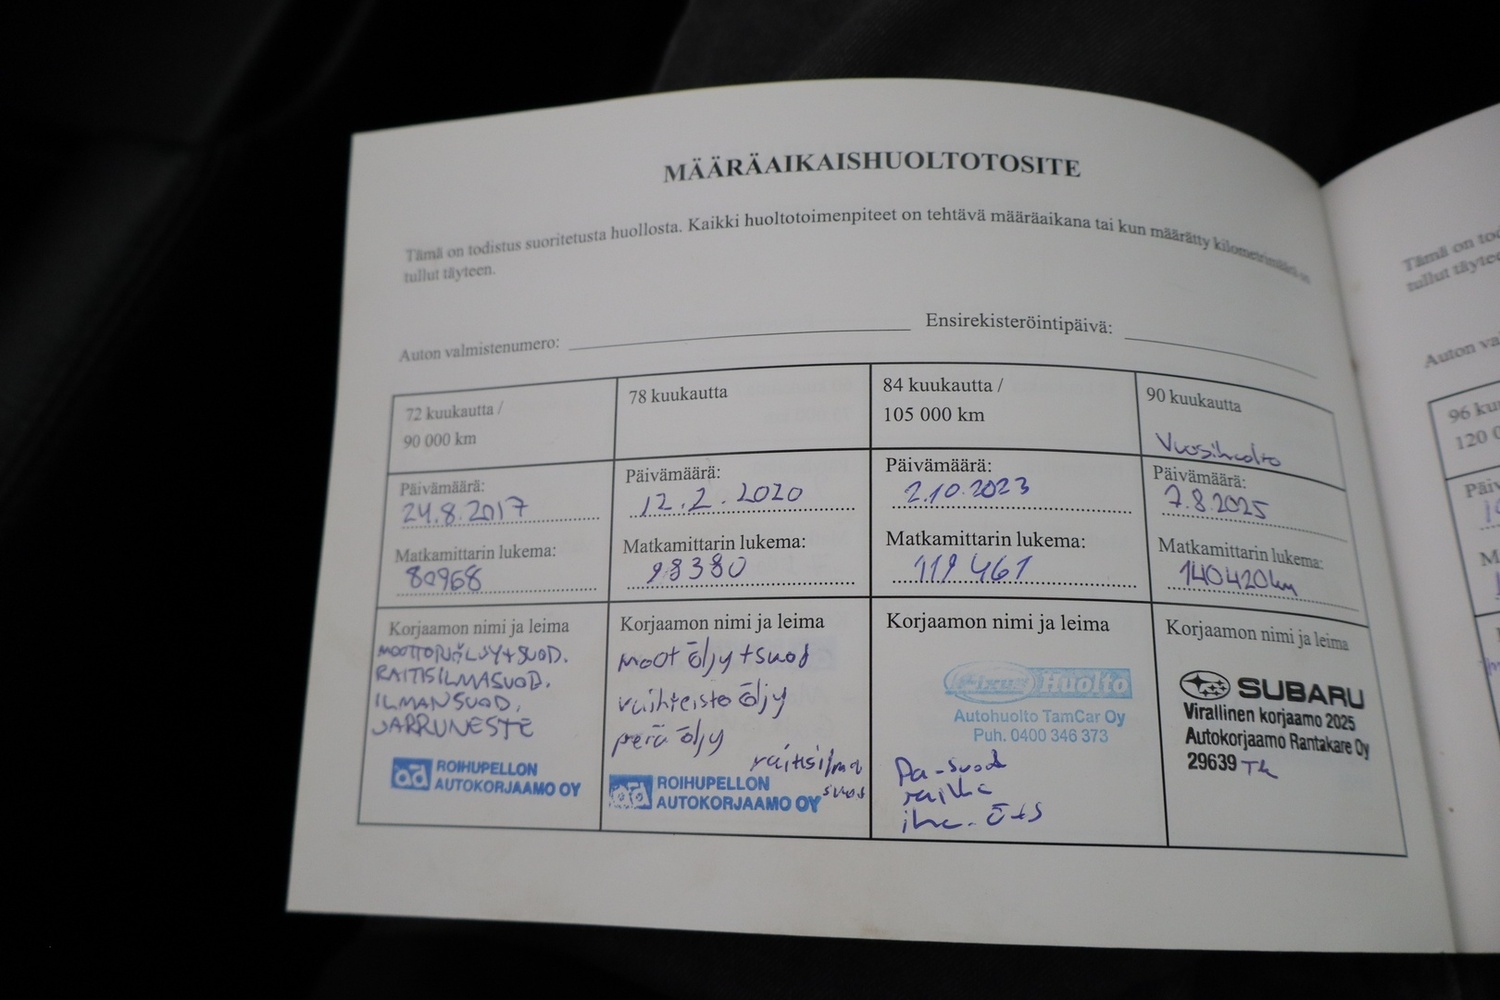 MÄÄRÄAIKAISHUOLTOTOSITE
Tämä on todistus suoritetusta huollosta. Kaikki huoltotoimenpiteet on tehtävä määräaikana tai kun määrätty kilometrimäärä on
tullut täyteen.
Auton valmistenumero:
Ensirekisteröintipäivä:
72 kuukautta /
90 000 km
Päivämäärä:
24.8.2017
Matkamittarin lukema:
80968
Korjaamon nimi ja leima
MOOTTORIÖLJY+SUOD.
RAITISILMASUOD.
ILMANSUOD.
JARRUNESTE
ROIHUPELLON
AUTOKORJAAMO OY
78 kuukautta
Päivämäärä:
12.2.2020
Matkamittarin lukema:
98380
Korjaamon nimi ja leima
moot öljy+suod
vaihteisto öljy
perä öljy
raitisilma
suod
ad ROIHUPELLON
AUTOKORJAAMO OY
84 kuukautta /
105 000 km
Päivämäärä:
2.10.2023
Matkamittarin lukema:
119461
Korjaamon nimi ja leima
Fixus Huolto
Autohuolto TamCar Oy
Puh. 0400 346 373
Pa-suod
raitis
ö+s
90 kuukautta
Vuosihuolto
Päivämäärä:
7.8.2025
Matkamittarin lukema:
140420km
Korjaamon nimi ja leima
SUBARU
Virallinen korjaamo 2025
Autokorjaamo Rantakare Oy
29639 TK
Tämä on
tullut
Auton
96
120